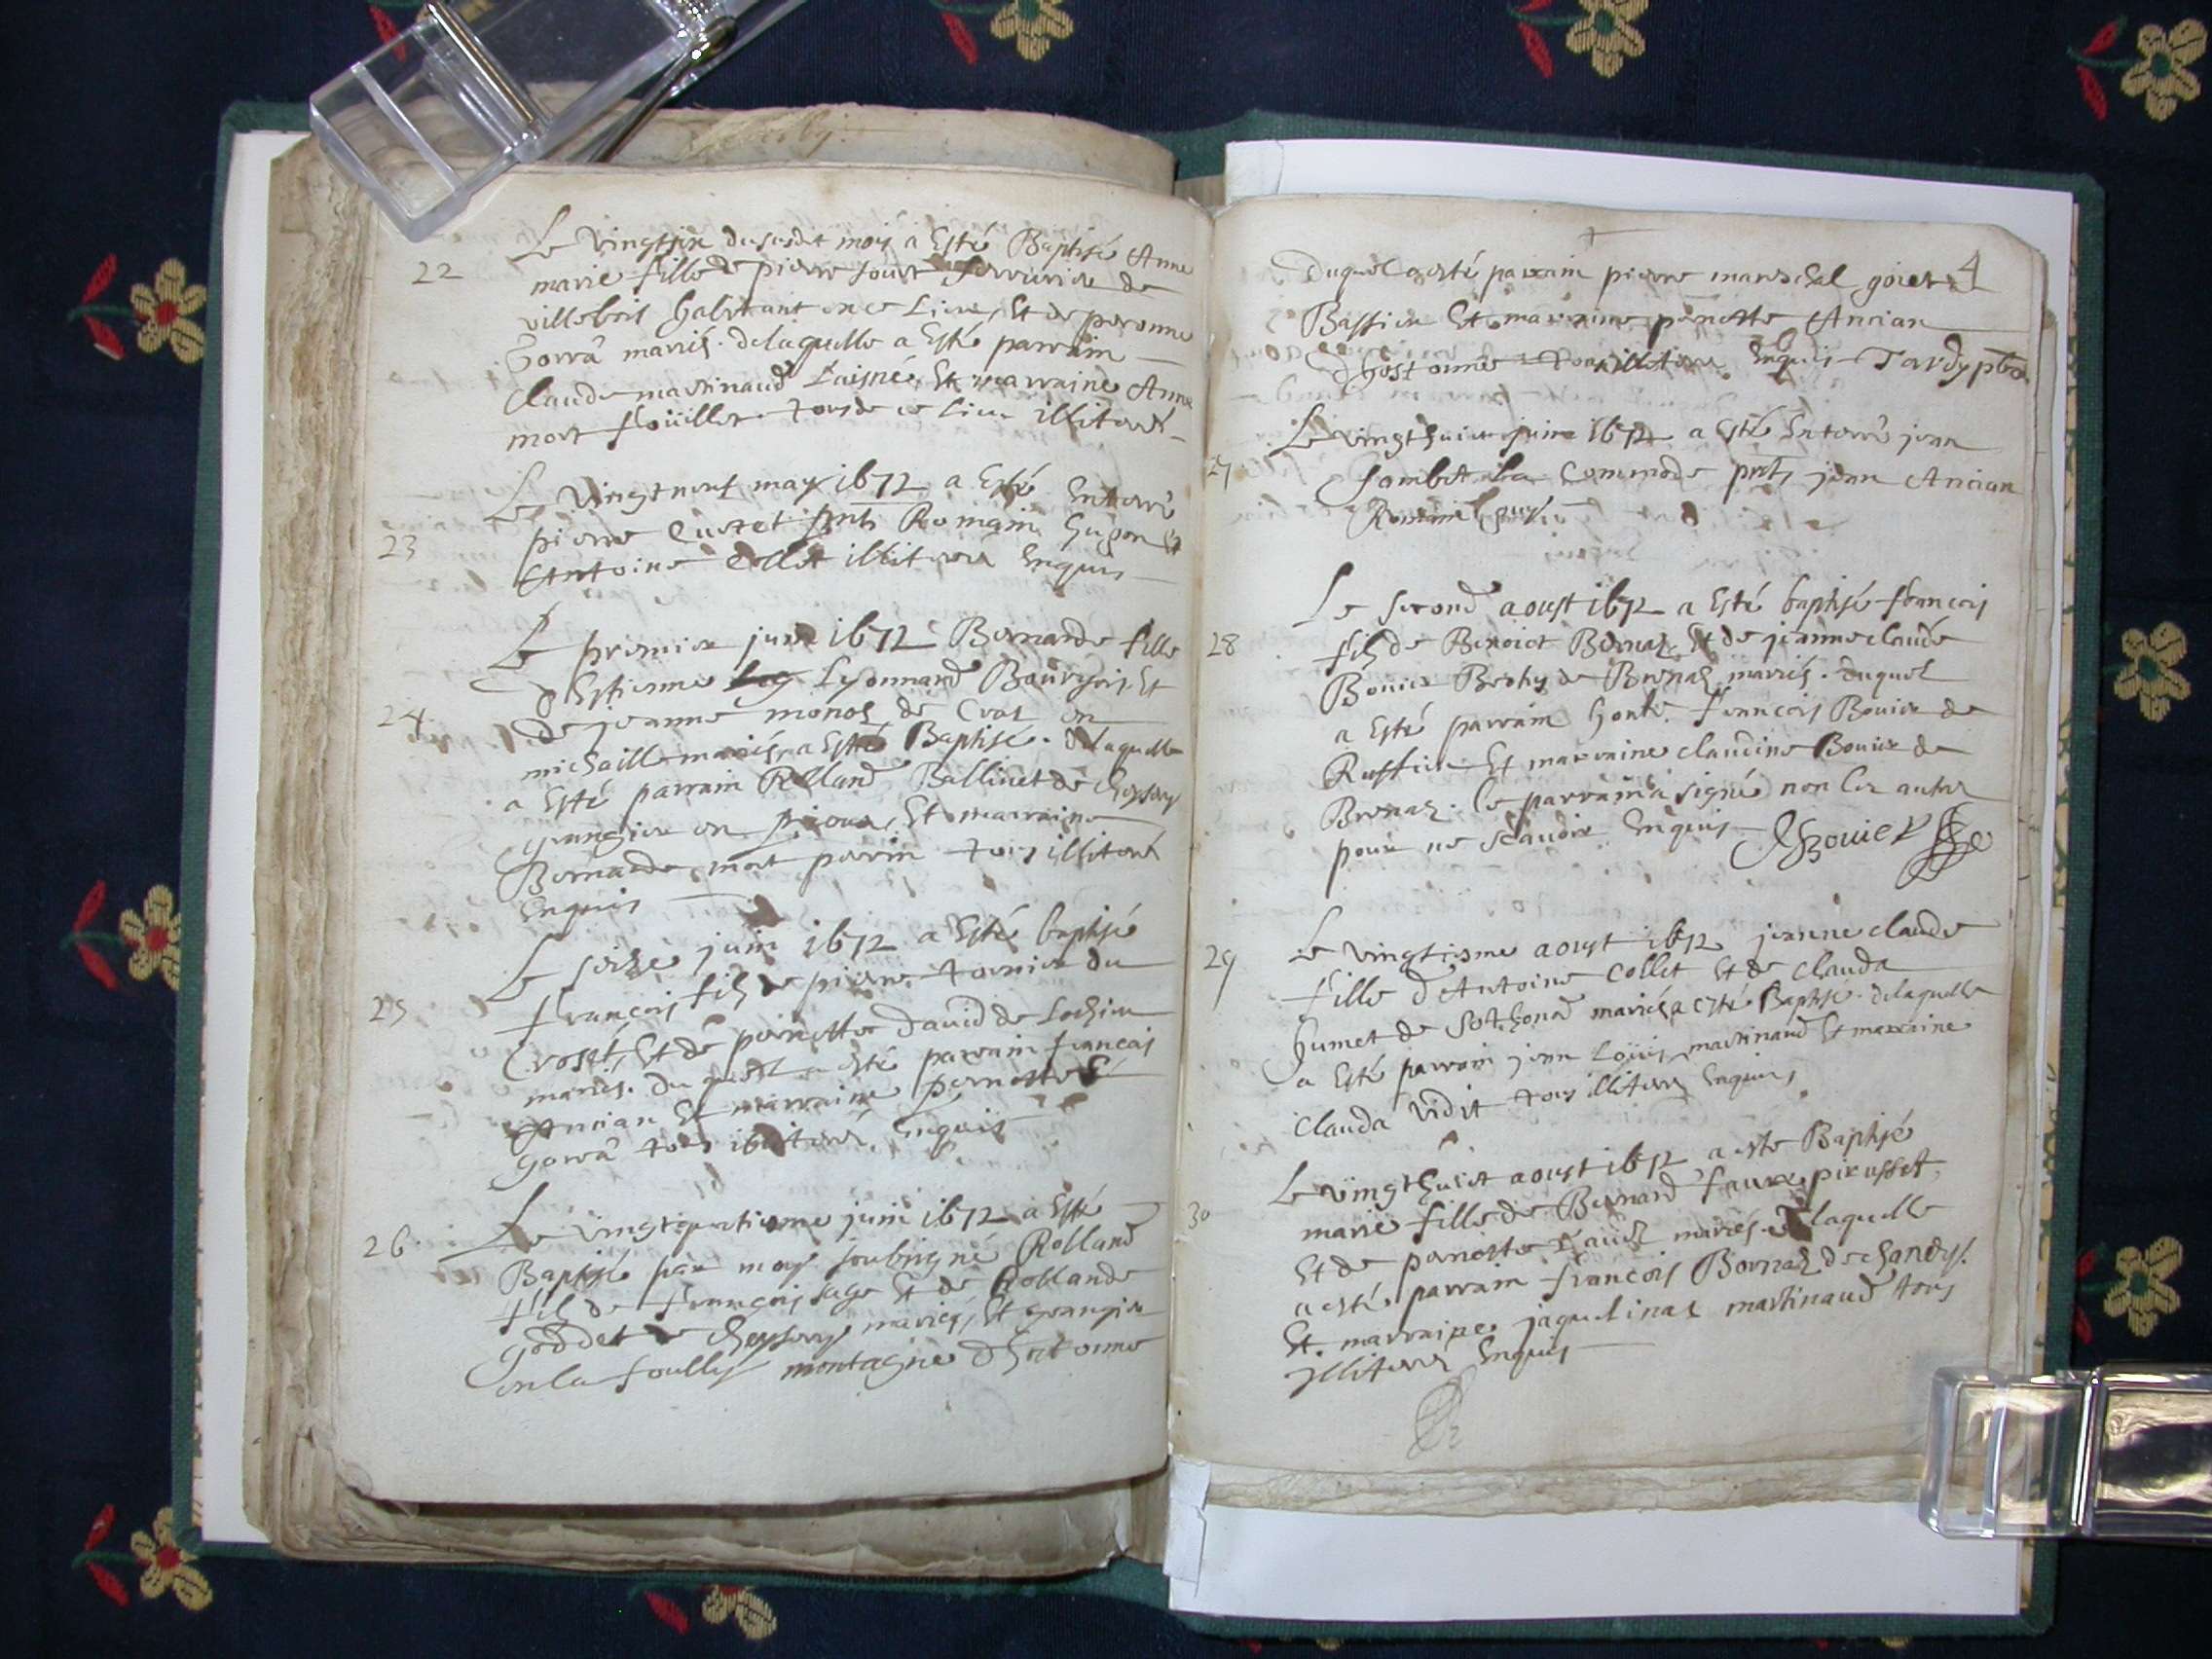 22
Le vingtsix dususdit mois a Esté Baptisé Anne
marie fille de pierre fourt serrurier de
villebois habitant en ce Lieu, Et de peronne
Gorra mariés. delaquelle a Esté parrain
Claude martinaud Laisné, Et marraine Anne
mort floüillet tous de ce lieu illiterés
23
Le vingtneuf may 1672 a Esté Enterré
pierre Custet pnts Romain Hugon Et
Antoine Collet illiterés Enquis
24
Le premier juin 1672 Bernarde fille
d'Estienne Lyonnard Bourgeois Et
de jeanne monoz de Craz en
michaille mariés, a Esté Baptisé. delaquelle
a Esté parrain Rolland Ballivet de Chezery
grangier en, Et marraine
Bernarde mort perrin tous illiterés
Enquis
25
Le seize juin 1672 a Esté baptisé
françois filz de pierre tornier du
Crozet, Et de pernette david de Lochieu
mariés. duquel a esté parrain francois
Ancian Et marraine pernette
Gorra tous illiterés. Enquis
26
Le vingtquatriesme juin 1672 a Esté
Baptisé par moy soubsigné Rolland
filz de françois sage Et de Rollande
goddet de Chezery mariés, Et grangier
en la foully montagne d'hostonne
4
Duquel a esté parrain pierre mareschal
Bassieu Et marraine pernette Ancian
d'hostonne tous illiterés Enquis Tardy pbre
27
Le vingthuict juin 1672 a Esté Enterré jean
Jombet La Commode pnts jean Ancian
Romain
28
Le second aoust 1672 a Esté baptisé francois
filz de Benoict Bornaz Et de jeanne claude
Bouier de Brenaz mariés. duquel
a Esté parrain honble. francois Bouier de
Ruffieu Et marraine claudine Bouier de
Brenaz. Le parrain a signé non les autres
pour ne scavoir Enquis Bouier
29
Le vingtiesme aoust 1672 jeanne claude
fille d'Antoine Collet Et de Clauda
humet de Sothonod mariés a esté Baptisé. delaquelle
a Esté parrain jean Loüis martinaud Et marraine
Clauda vidit tous illiterés Enquis
30
Le vingthuict aoust 1672 a este Baptisé
marie fille de Bernard faure pirusset
Et de pernette mariés. delaquelle
a esté parrain francois Bornaz de
Et. marraine jaquelinaz martinaud tous
illiterés Enquis